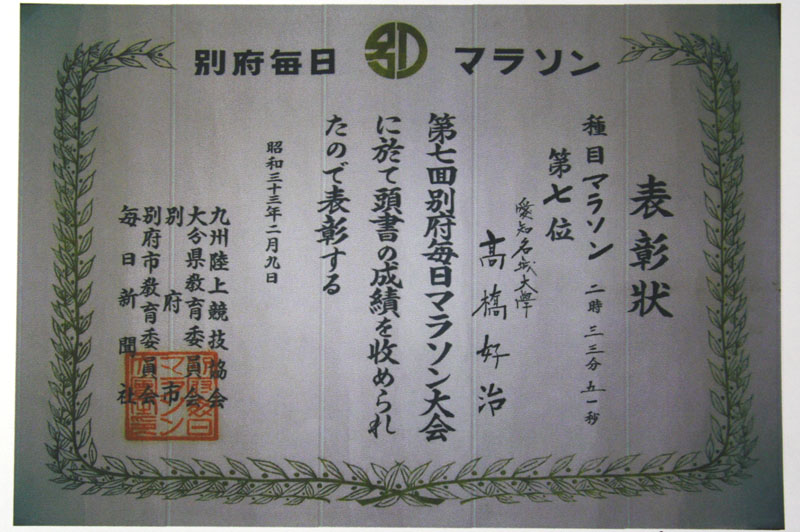 別府毎日 マラソン
表彰状
種目マラソン 二時三三分五一秒
第七位
愛知名城大學
髙橋好治
第七回別府毎日マラソン大会
に於て頭書の成績を收められ
たので表彰する
昭和三十三年二月九日
九州陸上競技協会
大分県教育委員会
別府市
別府市教育委員会
毎日新聞社